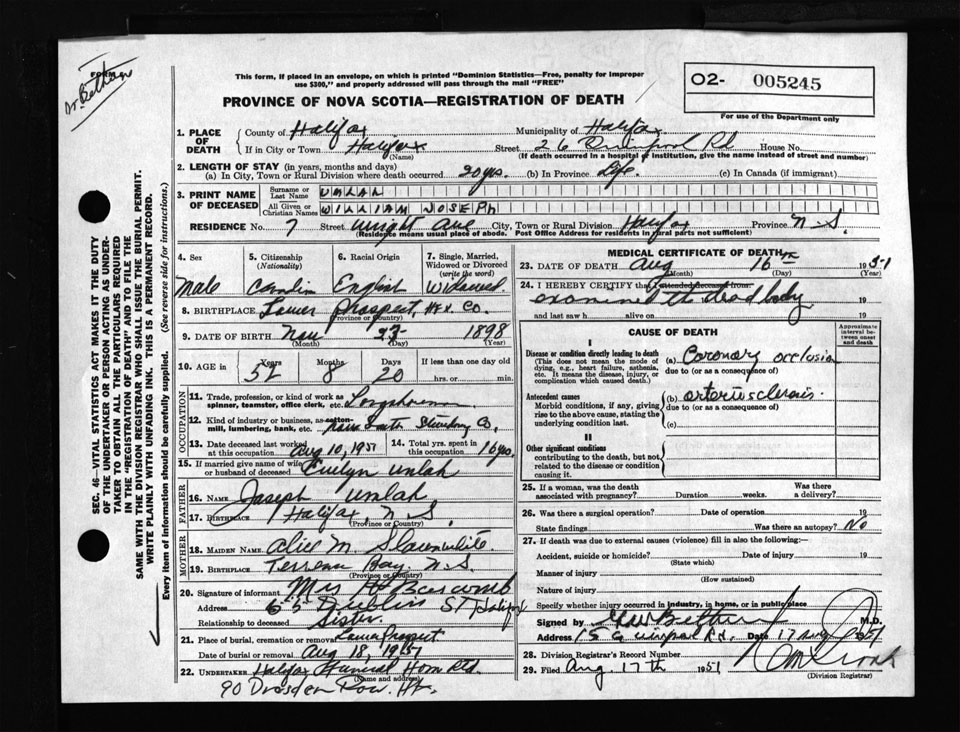 FORM
Dr. Bethune
This form, if placed in an envelope, on which is printed "Dominion Statistics—Free, penalty for improper
use $300," and properly addressed will pass through the mail "FREE"
O2- 005245
For use of the Department only
PROVINCE OF NOVA SCOTIA—REGISTRATION OF DEATH
SEC. 46—VITAL STATISTICS ACT MAKES IT THE DUTY
OF THE UNDERTAKER OR PERSON ACTING AS UNDER-
TAKER TO OBTAIN ALL THE PARTICULARS REQUIRED
IN THE "REGISTRATION OF DEATH" AND TO FILE THE
SAME WITH THE DIVISION REGISTRAR WHO SHALL ISSUE THE BURIAL PERMIT.
WRITE PLAINLY WITH UNFADING INK. THIS IS A PERMANENT RECORD.
Every item of information should be carefully supplied. (See reverse side for instructions.)
1. PLACE OF DEATH
County of Halifax Municipality of Halifax
If in City or Town Halifax Street 26 Rd House No.
(Name) (If death occurred in a hospital or institution, give the name instead of street and number)
2. LENGTH OF STAY (in years, months and days)
(a) In City, Town or Rural Division where death occurred 20 yrs. (b) In Province Life. (c) In Canada (if immigrant)
3. PRINT NAME OF DECEASED
Surname or Last Name UMLAH
All Given or Christian Names WILLIAM JOSEPH
RESIDENCE No. 7 Street Wright Ave City, Town or Rural Division Halifax Province N.S.
(Residence means usual place of abode. Post Office Address for residents in rural parts not sufficient)
4. Sex Male
5. Citizenship (Nationality)
6. Racial Origin English
7. Single, Married, Widowed or Divorced (write the word) Widowed
8. BIRTHPLACE Lower Prospect, Hfx. Co.
(Province or Country)
9. DATE OF BIRTH Nov 23 1898
(Month) (Day)
10. AGE Years 52 Months 8 Days 20 If less than one day old
hrs. or min.
OCCUPATION
11. Trade, profession, or kind of work as spinner, teamster, office clerk, etc. Longshoreman
12. Kind of industry or business, as cotton-mill, lumbering, bank, etc. Co.
13. Date deceased last worked at this occupation Aug 10, 1951
14. Total yrs. spent in this occupation 16 yrs.
15. If married give name of wife or husband of deceased Evelyn Umlah
FATHER
16. NAME Joseph Umlah
17. BIRTHPLACE Halifax, N.S.
(Province or Country)
MOTHER
18. MAIDEN NAME Alice M. Slaunwhite
19. BIRTHPLACE Terrence Bay. N.S.
(Province or Country)
20. Signature of informant Mrs
Address 65 Dublin St Halifax
Relationship to deceased Sister
21. Place of burial, cremation or removal Lower Prospect
Date of burial or removal Aug 18, 1951
22. UNDERTAKER Halifax Funeral Home Ltd.
90 Dresden Row. Hfx.
MEDICAL CERTIFICATE OF DEATH
23. DATE OF DEATH Aug 16th 1951
(Month) (Day) (Year)
24. I HEREBY CERTIFY that I attended deceased from:
examined the dead body 19
and last saw h alive on 19
CAUSE OF DEATH
Approximate interval between onset and death
I
Disease or condition directly leading to death (a) Coronary occlusion
(This does not mean the mode of dying, e.g., heart failure, asthenia, etc. It means the disease, injury, or complication which caused death.) due to (or as a consequence of)
Antecedent causes (b) arteriosclerosis
Morbid conditions, if any, giving rise to the above cause, stating the underlying condition last. due to (or as a consequence of)
(c)
II
Other significant conditions
contributing to the death, but not related to the disease or condition causing it
25. If a woman, was the death associated with pregnancy? Duration weeks. Was there a delivery?
26. Was there a surgical operation? Date of operation 19
State findings Was there an autopsy? No
27. If death was due to external causes (violence) fill in also the following:—
Accident, suicide or homicide? Date of injury 19
(State which)
Manner of injury
(How sustained)
Nature of injury
Specify whether injury occurred in industry, in home, or in public place
Signed by M.D.
Address Rd. Date 17 Aug 1951
28. Division Registrar's Record Number
29. Filed Aug. 17th 1951
(Division Registrar)